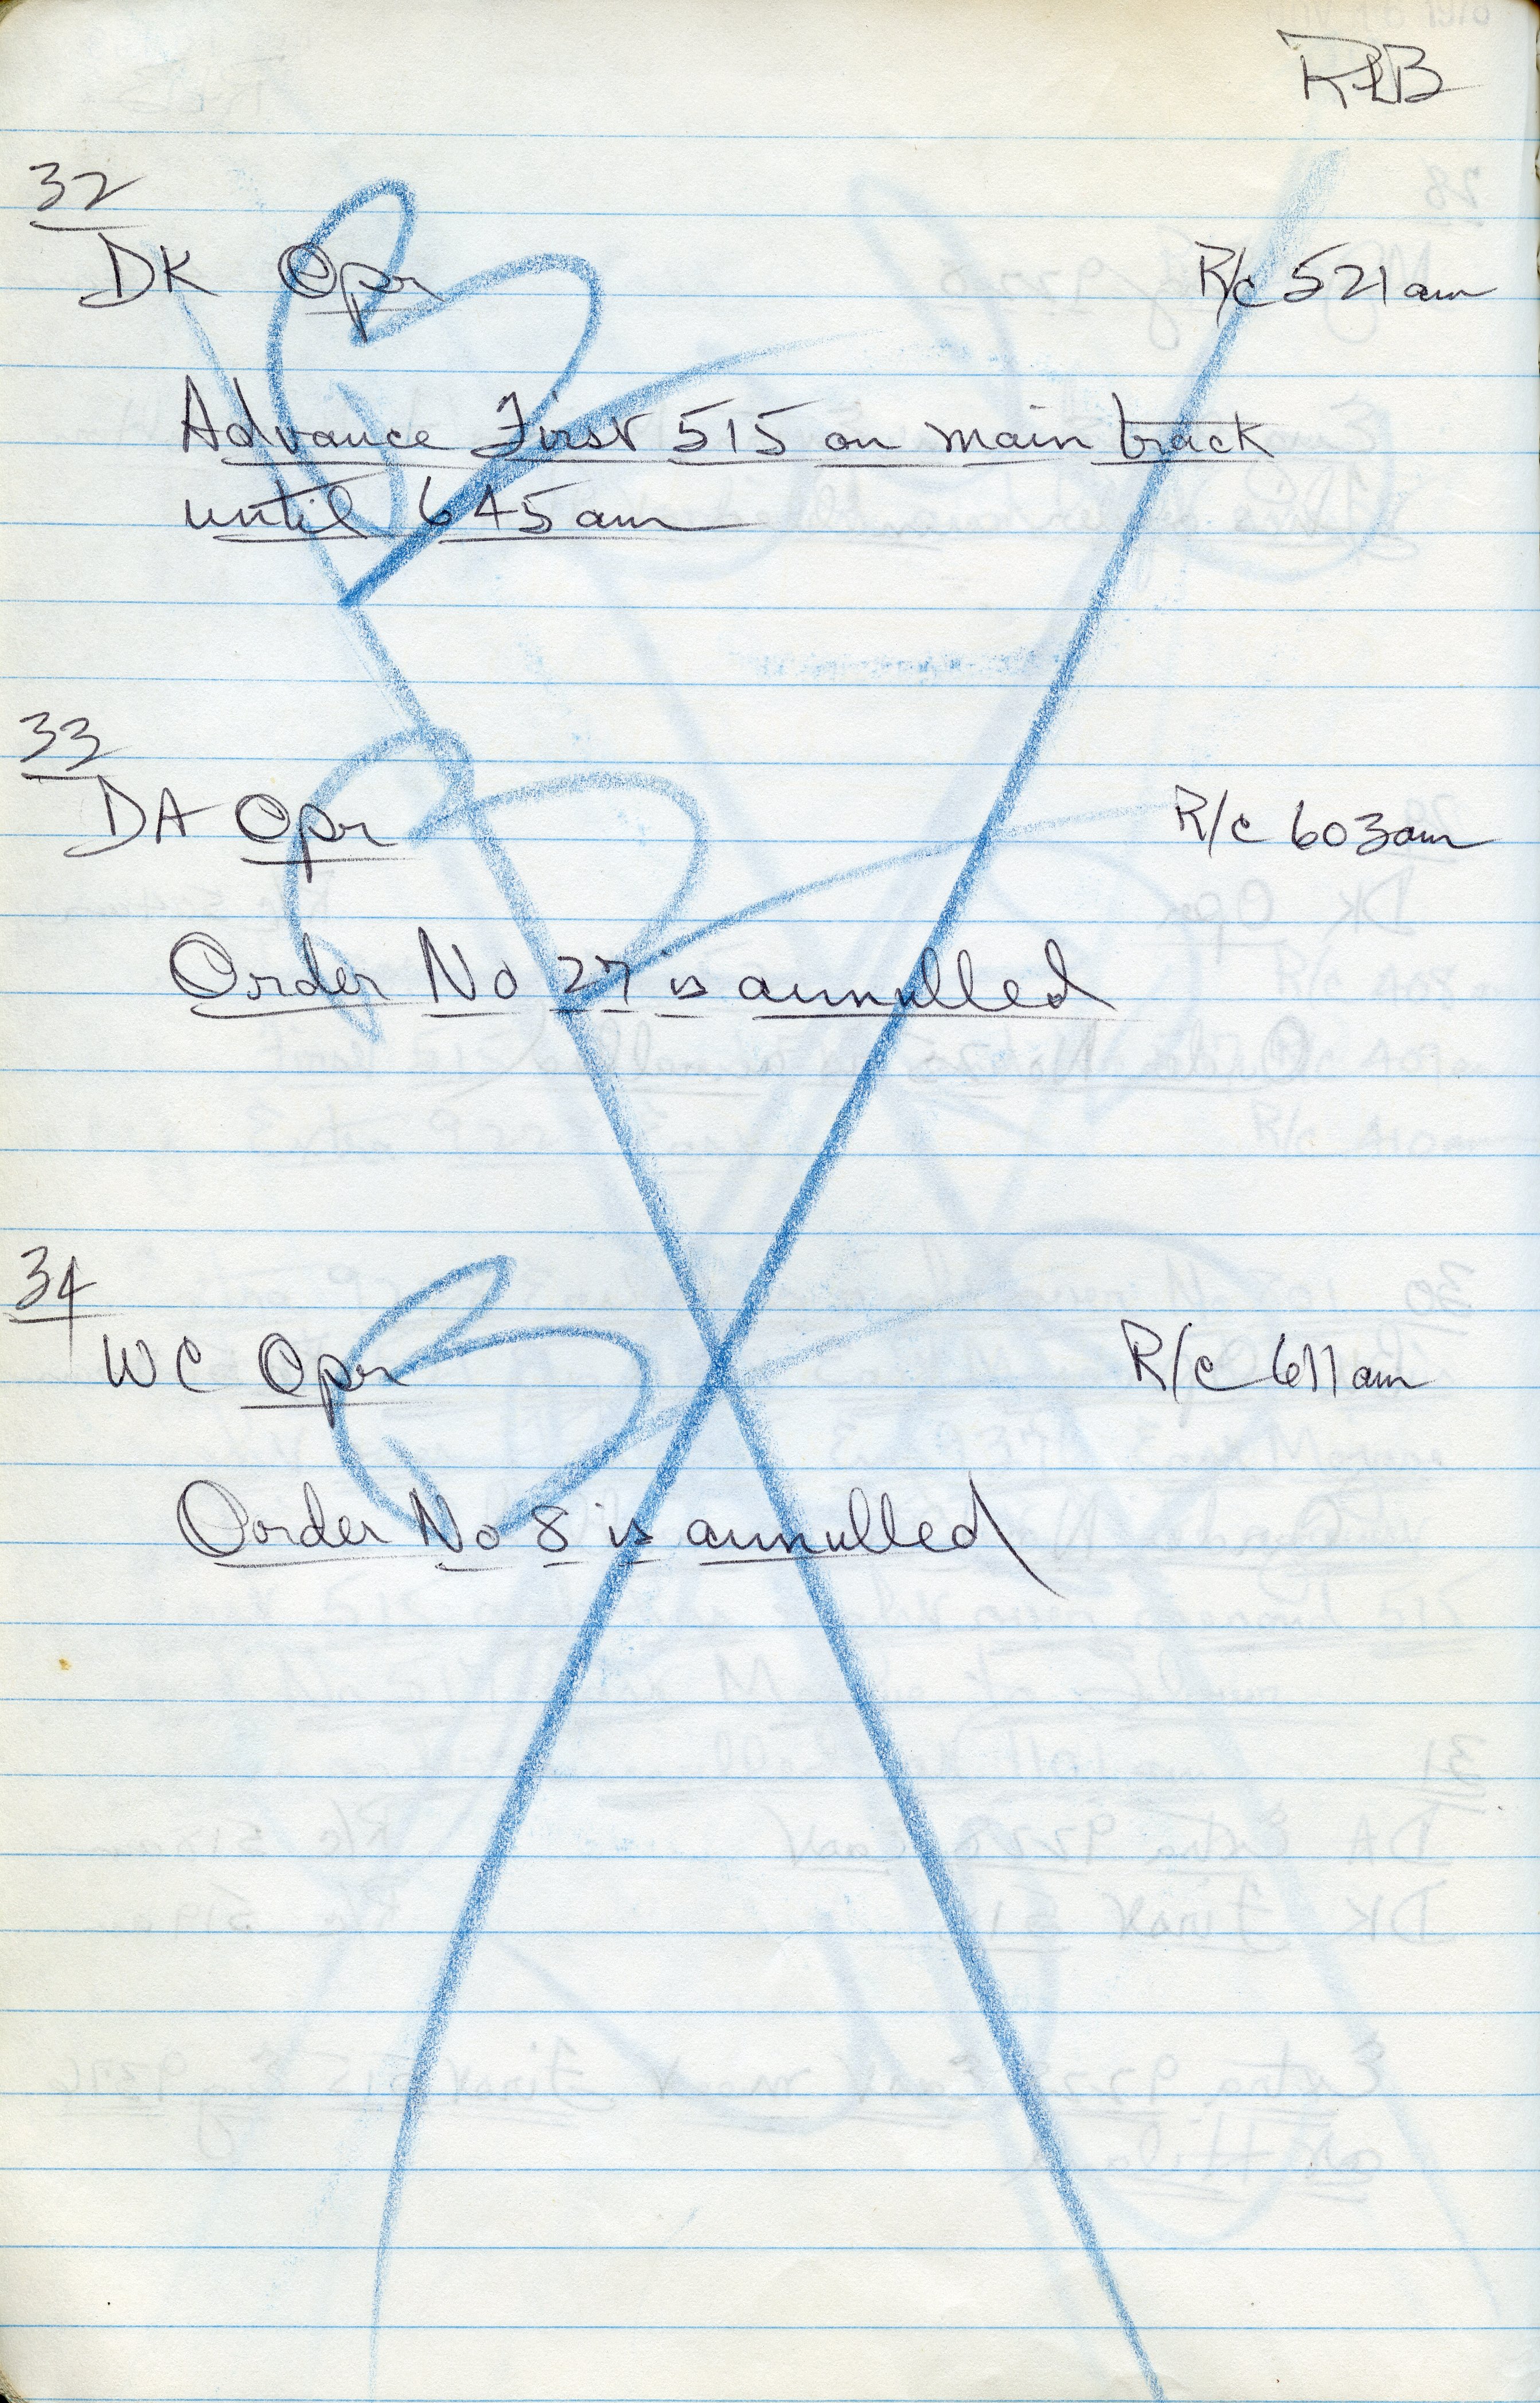 RLB
32
DK Opr R/c 521am
Advance First 515 on main track
until 645am
33
DA Opr R/c 603am
Order No 27 is annulled
34
WC Opr R/c 611am
Order No 8 is annulled